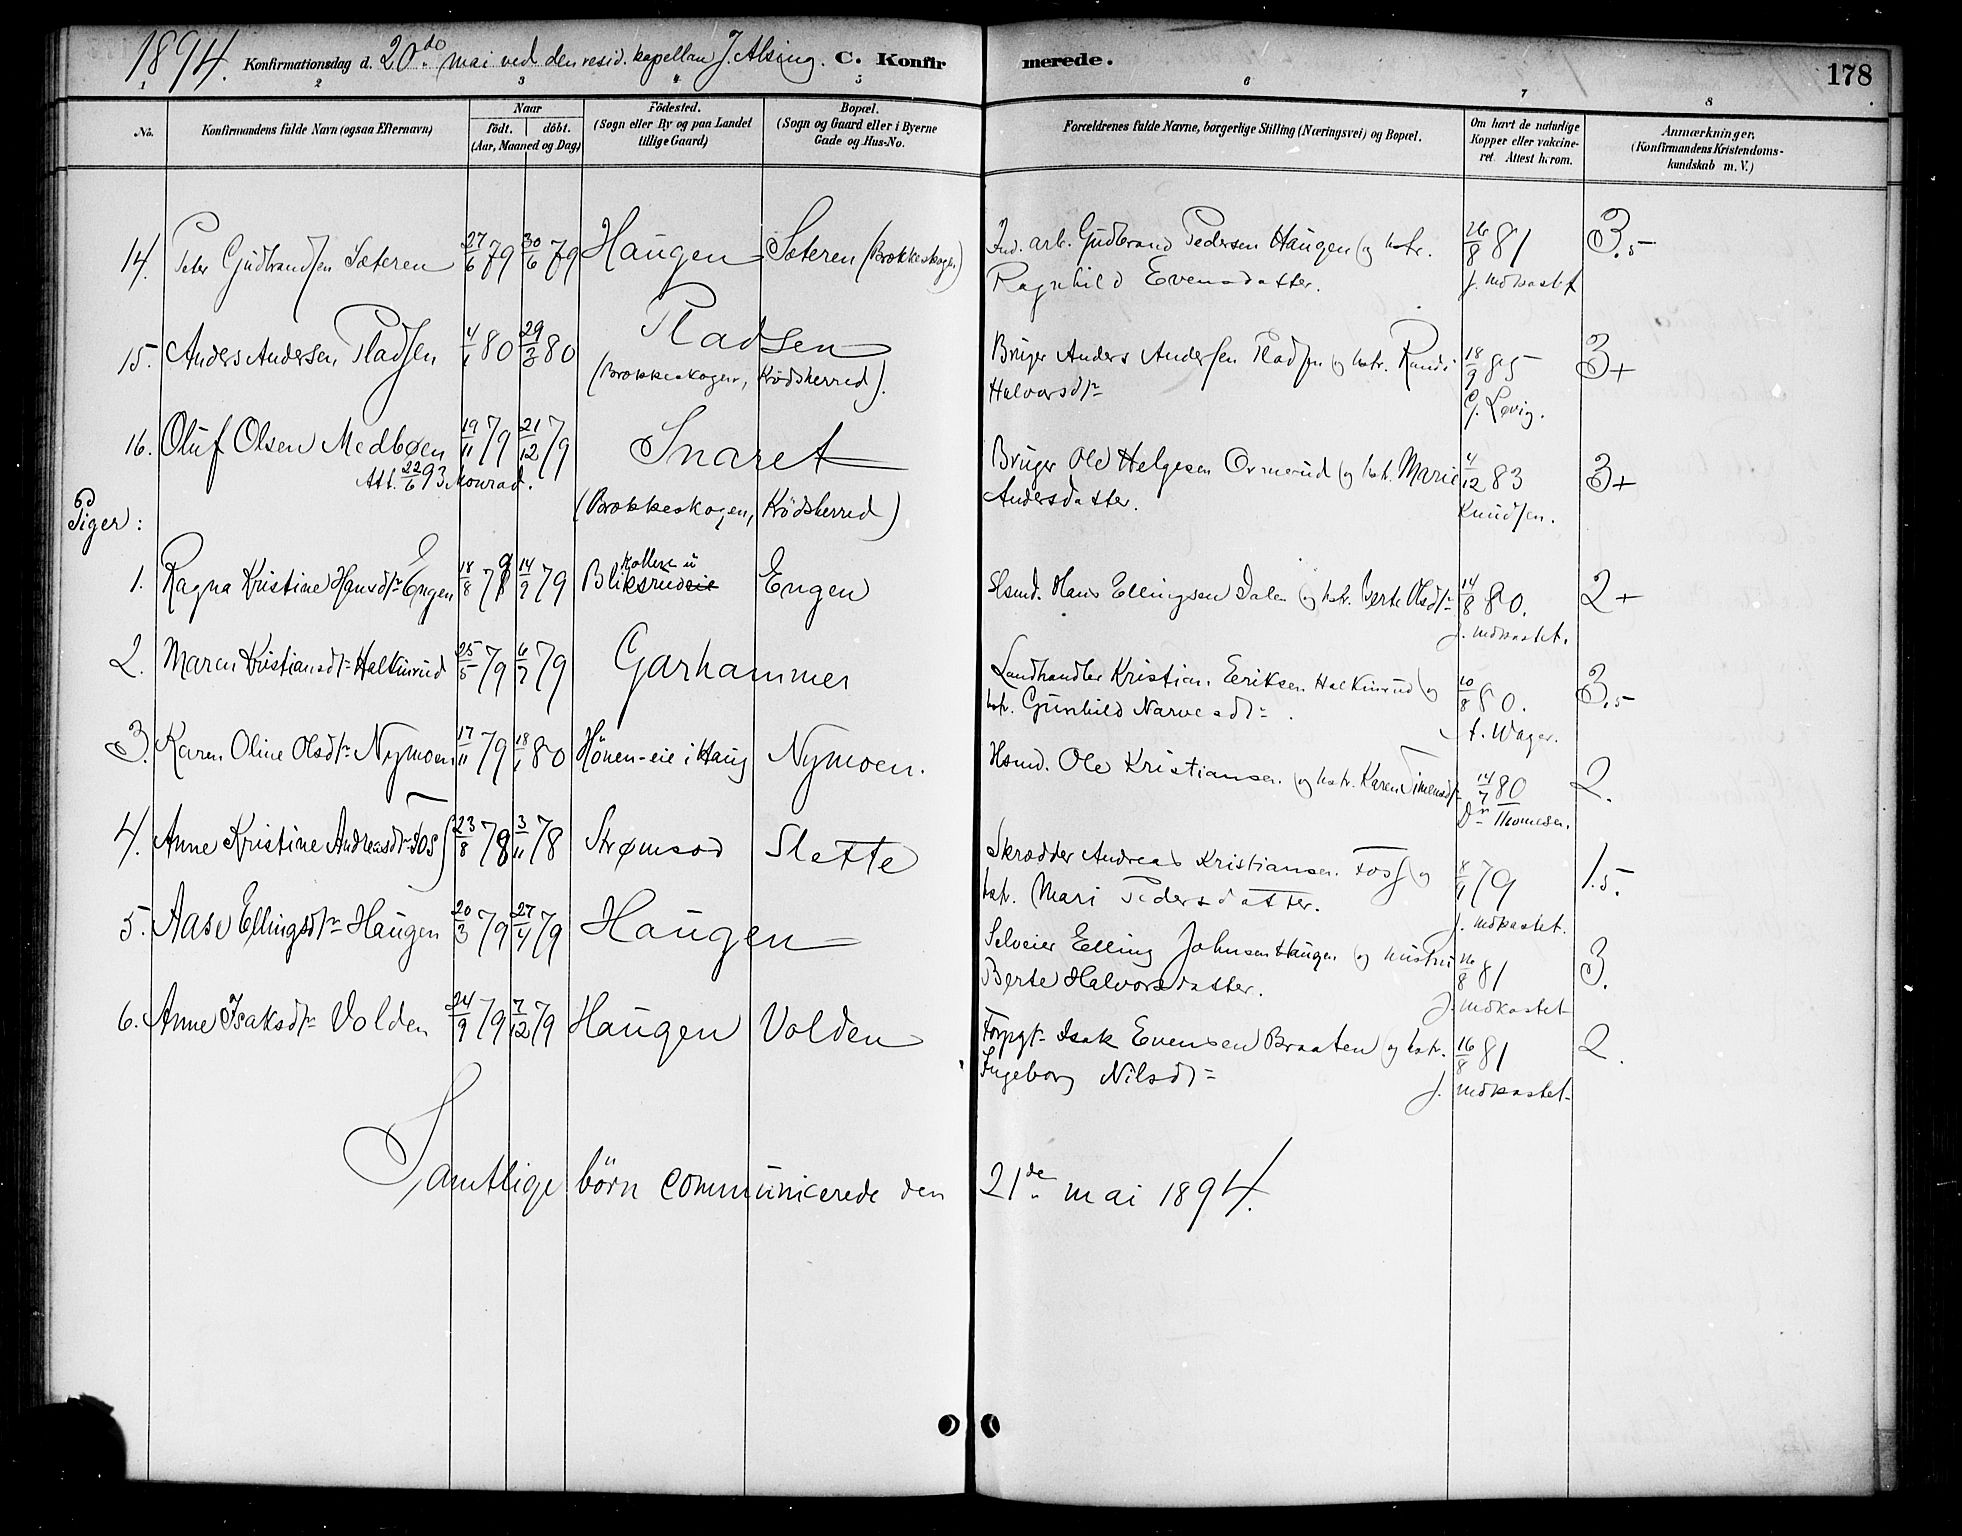 1894. Konfirmationsdag d. 20do mai ved den resid. kapellan J. Alsing. C. Konfirmerede. 178
1 2 3 4 5 6 7 8
No.
Konfirmandens fulde Navn (ogsaa Efternavn)
Naar
födt. döbt.
(Aar, Maaned og Dag)
Födested.
(Sogn eller By og paa Landet
tillige Gaard)
Bopæl.
(Sogn og Gaard eller i Byerne
Gade og Hus-No.
Forældrenes fulde Navne, borgerlige Stilling (Næringsvei) og Bopæl.
Om havt de naturlige
Kopper eller vakcine-
ret. Attest herom.
Anmærkninger,
(Konfirmandens Kristendoms-
kundskab m. V.)
14. Peter Gudbrandsen Sæteren 27/6 79 30/6 79 Haugen Sæteren (Brokkeskogen) Ind. arb. Gudbrand Pedersen Haugen og hstr. 26/8 81 3.5
Ragnhild Evensdatter. J. Indkastet
15. Anders Andersen Pladsen 4/1 80 29/3 80 Pladsen Brüger Anders Andersen Pladsen og hstr. Randi 18/9 85 3+
(Brokkeskogen, Krödsherred). Halvorsdtr G. Løvig.
16. Oluf Olsen Medbøen 19/11 79 21/12 79 Snaret Brüger Ole Helgesen Ormerud og hstr. Marie 4/12 83 3+
Att. 22/6 93 Monrad. (Brokkeskogen, Krödsherred) Andersdatter. Knudsen.
Piger:
1. Ragna Kristine Hansdtr Engen 18/8 79 14/9 79 Bliksrudeie Engen Hsmd. Hans Ellingsen Dalen og hstr. Berte Olsdtr 14/8 80. 2+
J. Indkastet.
2. Maren Kristiansdtr Halkinrud 25/5 79 6/7 79 Garhammer Landhandler Kristian Eriksen Halkinrud og 10/8 80. 3.5
hstr. Gunhild Narvesdtr. A. Wager.
3. Karen Oline Olsdtr Nymoen 17/11 79 18/1 80 Hönen-eie i Haug Nymoen. Hsmd. Ole Kristiansen og hstr. Karen Simensdtr 14/7 80 2.
Dr Thomesen.
4. Anne Kristine Andreasdtr Foss 23/8 78 3/11 78 Strømsod Slette Skrædder Andreas Kristiansen Foss og 8/11 79 1.5.
hstr. Mari Pedersdatter. J. Indkastet.
5. Aase Ellingsdtr Haugen 20/3 79 27/4 79 Haugen Selveier Elling Johnsen Haugen og hustru 16/8 81 3.
Berte Halvorsdatter. J. Indkastet
6. Anne Isaksdtr Volden 24/9 79 7/12 79 Haugen Volden Forpgt. Isak Evensen Braaten og hstr. 16/8 81 2.
Ingeborg Nilsdtr J. Indkastet
Samtlige börn communicerede den 21de mai 1894.